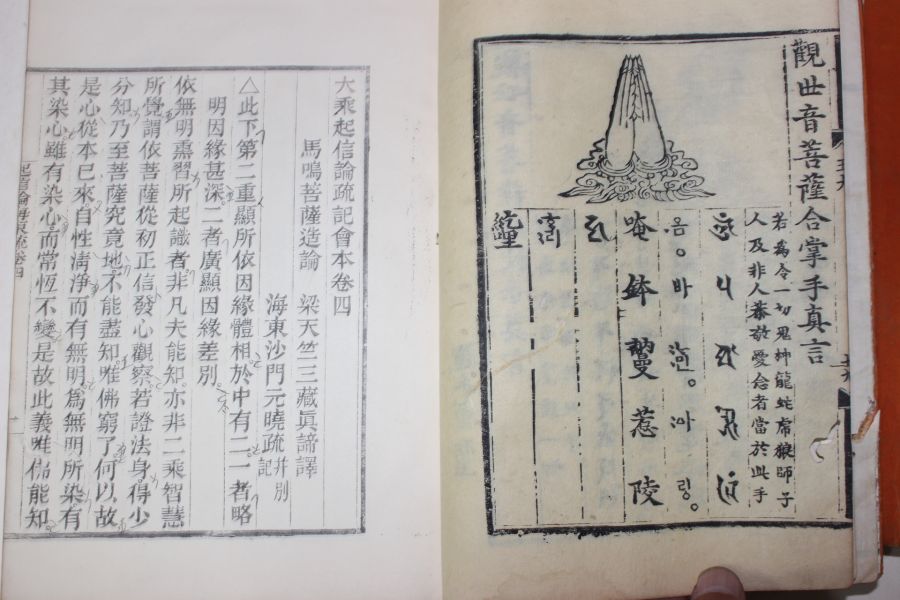 觀世音菩薩合掌手真言
若為令一切鬼神龍蛇虎狼師子
人及非人恭敬愛念者當於此手
옴。바 。아링。
唵鉢 惹陵
大乘起信論疏記會本卷四
馬鳴菩薩造論 梁天竺三藏眞諦譯
海東沙門元曉疏 幷別記
△此下第二重顯所依因緣體相於中有二一者略
明因緣甚深二者廣顯因緣差別
依無明熏習所起識者非凡夫能知亦非二乘智慧
所覺謂依菩薩從初正信發心觀察若證法身得少
分知乃至菩薩究竟地不能盡知唯佛窮了何以故
是心從本已來自性淸淨而有無明爲無明所染有
其染心雖有染心而常恆不變是故此義唯佛能知
起信論海東疏卷四 一